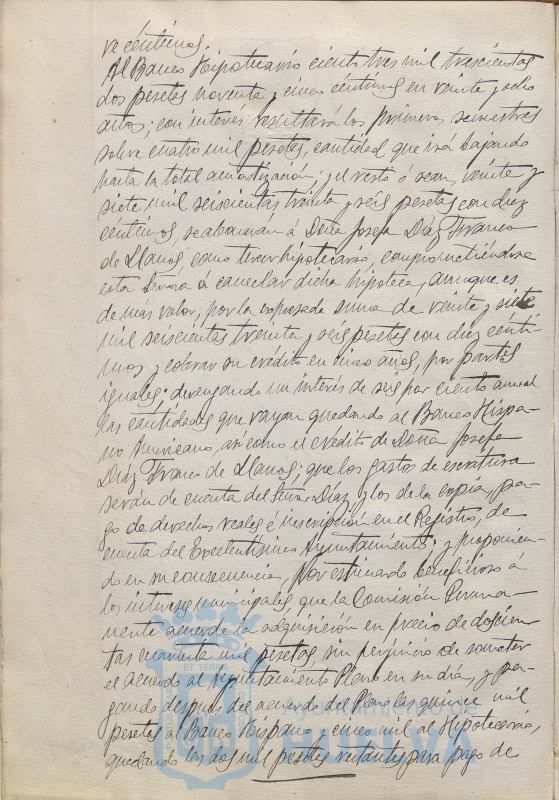 ve céntimos.
Al Banco Hipotecario ciento tres mil trescientas
dos pesetas noventa y cinco céntimos en veinte y ocho
años; con interés resultará los primeros semestres
sobre cuatro mil pesetas, cantidad que irá bajando
hasta la total amortización; y el resto ó sean, veinte y
siete mil seiscientas treinta y seis pesetas con diez
céntimos, se abonarán á Doña Josefa Díaz Franco
de Llanos, como tercer hipotecario, comprometiéndose
esta Señora á cancelar dicha hipoteca, aunque es
de más valor, por la expresada suma de veinte y siete
mil seiscientas treinta y seis pesetas con diez cénti-
mos y cobrar su crédito en cinco años, por partes
iguales; devengando un interés de seis por ciento anual
las cantidades que vayan quedando al Banco Hispa-
no Americano, así como el crédito de Doña Josefa
Díaz Franco de Llanos; que los gastos de escritura
serán de cuenta del Señor Díaz y los de la copia, pa-
go de derechos reales é inscripción en el Registro, de
cuenta del Excelentísimo Ayuntamiento; y proponien-
do en su consecuencia, Por estimarlo beneficioso á
los intereses municipales, que la Comisión Perma-
nente acuerde la adquisición en precio de doscien-
tas cuarenta mil pesetas, sin perjuicio de someter
el acuerdo al Ayuntamiento Pleno en su día, y pa-
gando después del acuerdo del Pleno las quince mil
pesetas al Banco Hispano y cinco mil al Hipotecario,
quedando las dos mil pesetas restantes para pago de